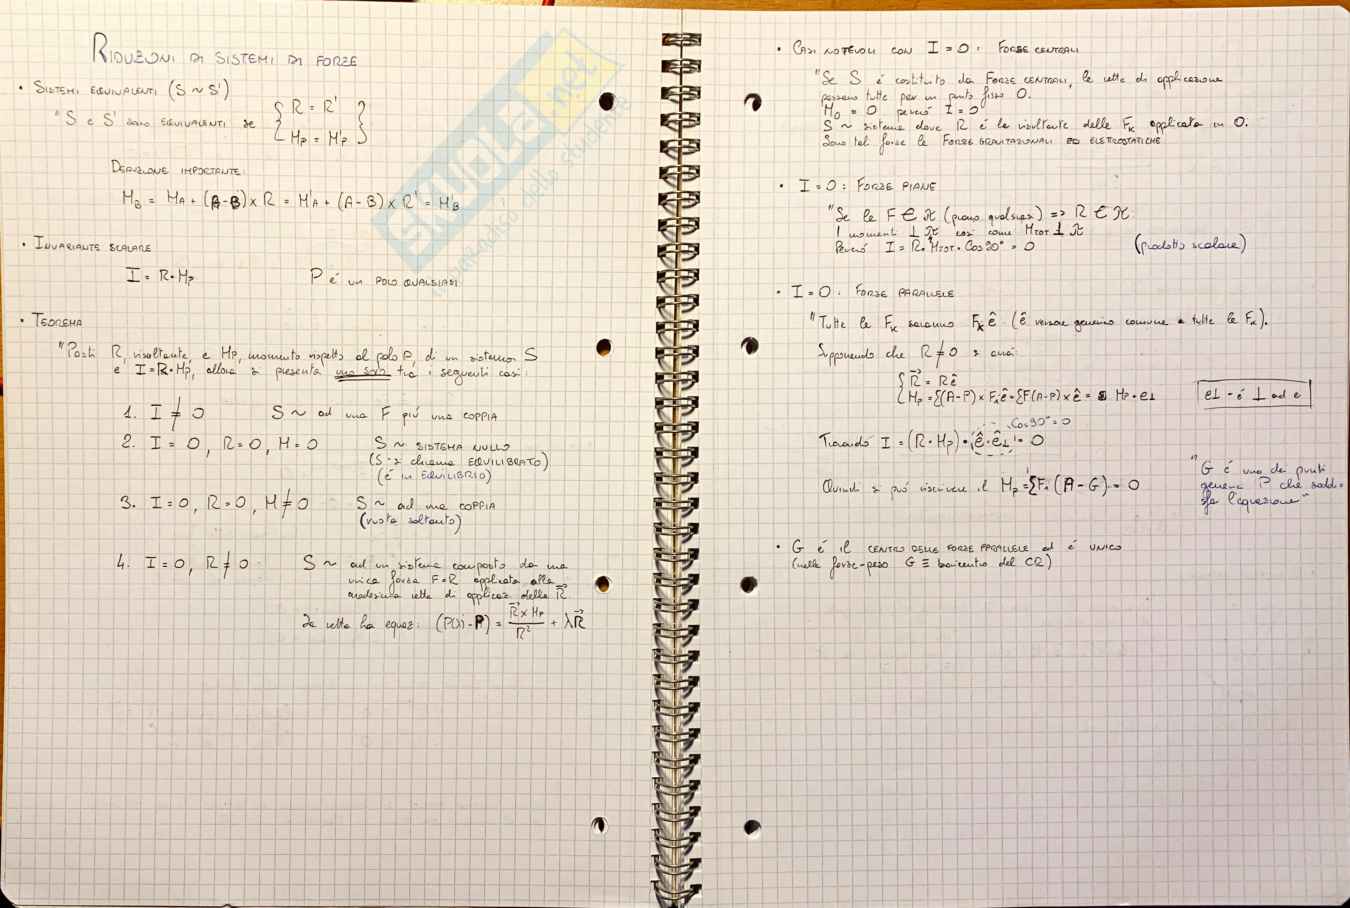 RIDUZIONI DI SISTEMI DI FORZE
• SISTEMI EQUIVALENTI (S ~ S')
"S e S' sono EQUIVALENTI se { R = R'
Mp = M'p }
DEFINIZIONE IMPORTANTE:
M_B = M_A + (A-B) × R = M'_A + (A-B) × R' = M'_B
• INVARIANTE SCALARE
I = R • Mp P é un POLO QUALSIASI
• TEOREMA
"Posti R, risultante, e Mp, momento rispetto al polo P, di un sistema S
e I = R • Mp, allora si presenta uno solo tra i seguenti casi:
1. I ≠ 0 S ~ ad una F piú una COPPIA
2. I = 0, R = 0, M = 0 S ~ SISTEMA NULLO
(S si chiama EQUILIBRATO)
(é in EQUILIBRIO)
3. I = 0, R = 0, M ≠ 0 S ~ ad una COPPIA
(ruota soltanto)
4. I = 0, R ≠ 0 S ~ ad un sistema composto da una
unica forza F = R applicata alla
medesima retta di applicaz della R⃗
la retta ha equaz: (P(λ) - P) = R⃗ × Mp / R² + λR⃗
• CASI NOTEVOLI CON I = 0: FORZE CENTRALI
"Se S é costituito da FORZE CENTRALI, le rette di applicazione
passano tutte per un punto fisso O.
M_O = 0 perció I = 0
S ~ sistema dove R é la risultante delle F_K applicata in O.
Sono tal forze le FORZE GRAVITAZIONALI ED ELETROSTATICHE
• I = 0: FORZE PIANE
"Se le F ∈ π (piano qualsiasi) => R ∈ π
I momenti ⊥ π cosí come M_TOT ⊥ π
Perció I = R • M_TOT • Cos 90° = 0 (prodotto scalare)
• I = 0: FORZE PARALLELE
"Tutte le F_K saranno F_K ê (ê versore generico comune a tutte le F_K).
Supponendo che R ≠ 0 si avrá:
{ R⃗ = R ê
Mp = Σ(A-P) × F_K ê = Σ F(A-P) × ê = Mp • e⊥ e⊥ - é ⊥ ad e
Cos 90° = 0
Trovando I = (R • Mp) • (ê • ê⊥) = 0
Quindi si puó riscrivere il Mp = Σ F_K (A - G) = 0
"G é uno dei punti
generici P che soddi-
sfa l'equazione"
• G é il CENTRO DELLE FORZE PARALLELE ed é UNICO
(nelle forze-peso G ≡ baricentro del CR)
SKUOLA.net